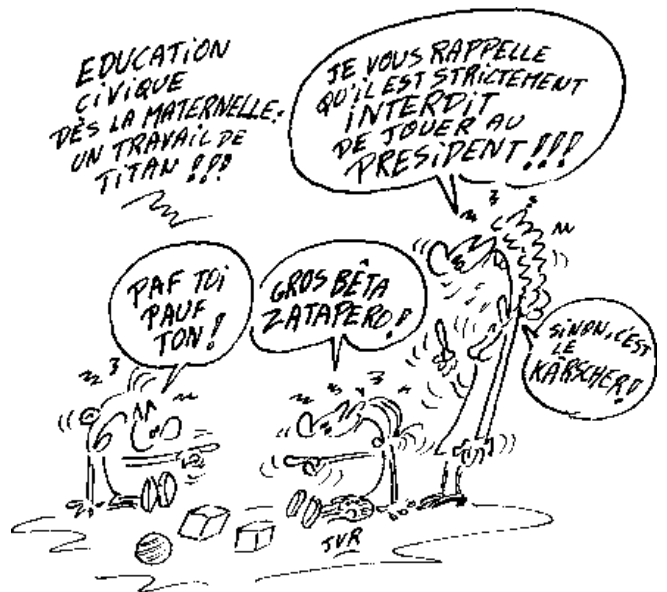 EDUCATION
CIVIQUE
DÈS LA MATERNELLE:
UN TRAVAIL DE
TITAN !!!
JE VOUS RAPPELLE
QU'IL EST STRICTEMENT
INTERDIT
DE JOUER AU
PRESIDENT !!!
PAF TOI
PAUF
TON !
GROS BÊTA
ZATAPERO !
SINON, C'EST
LE
KÄRSCHER !
JVR